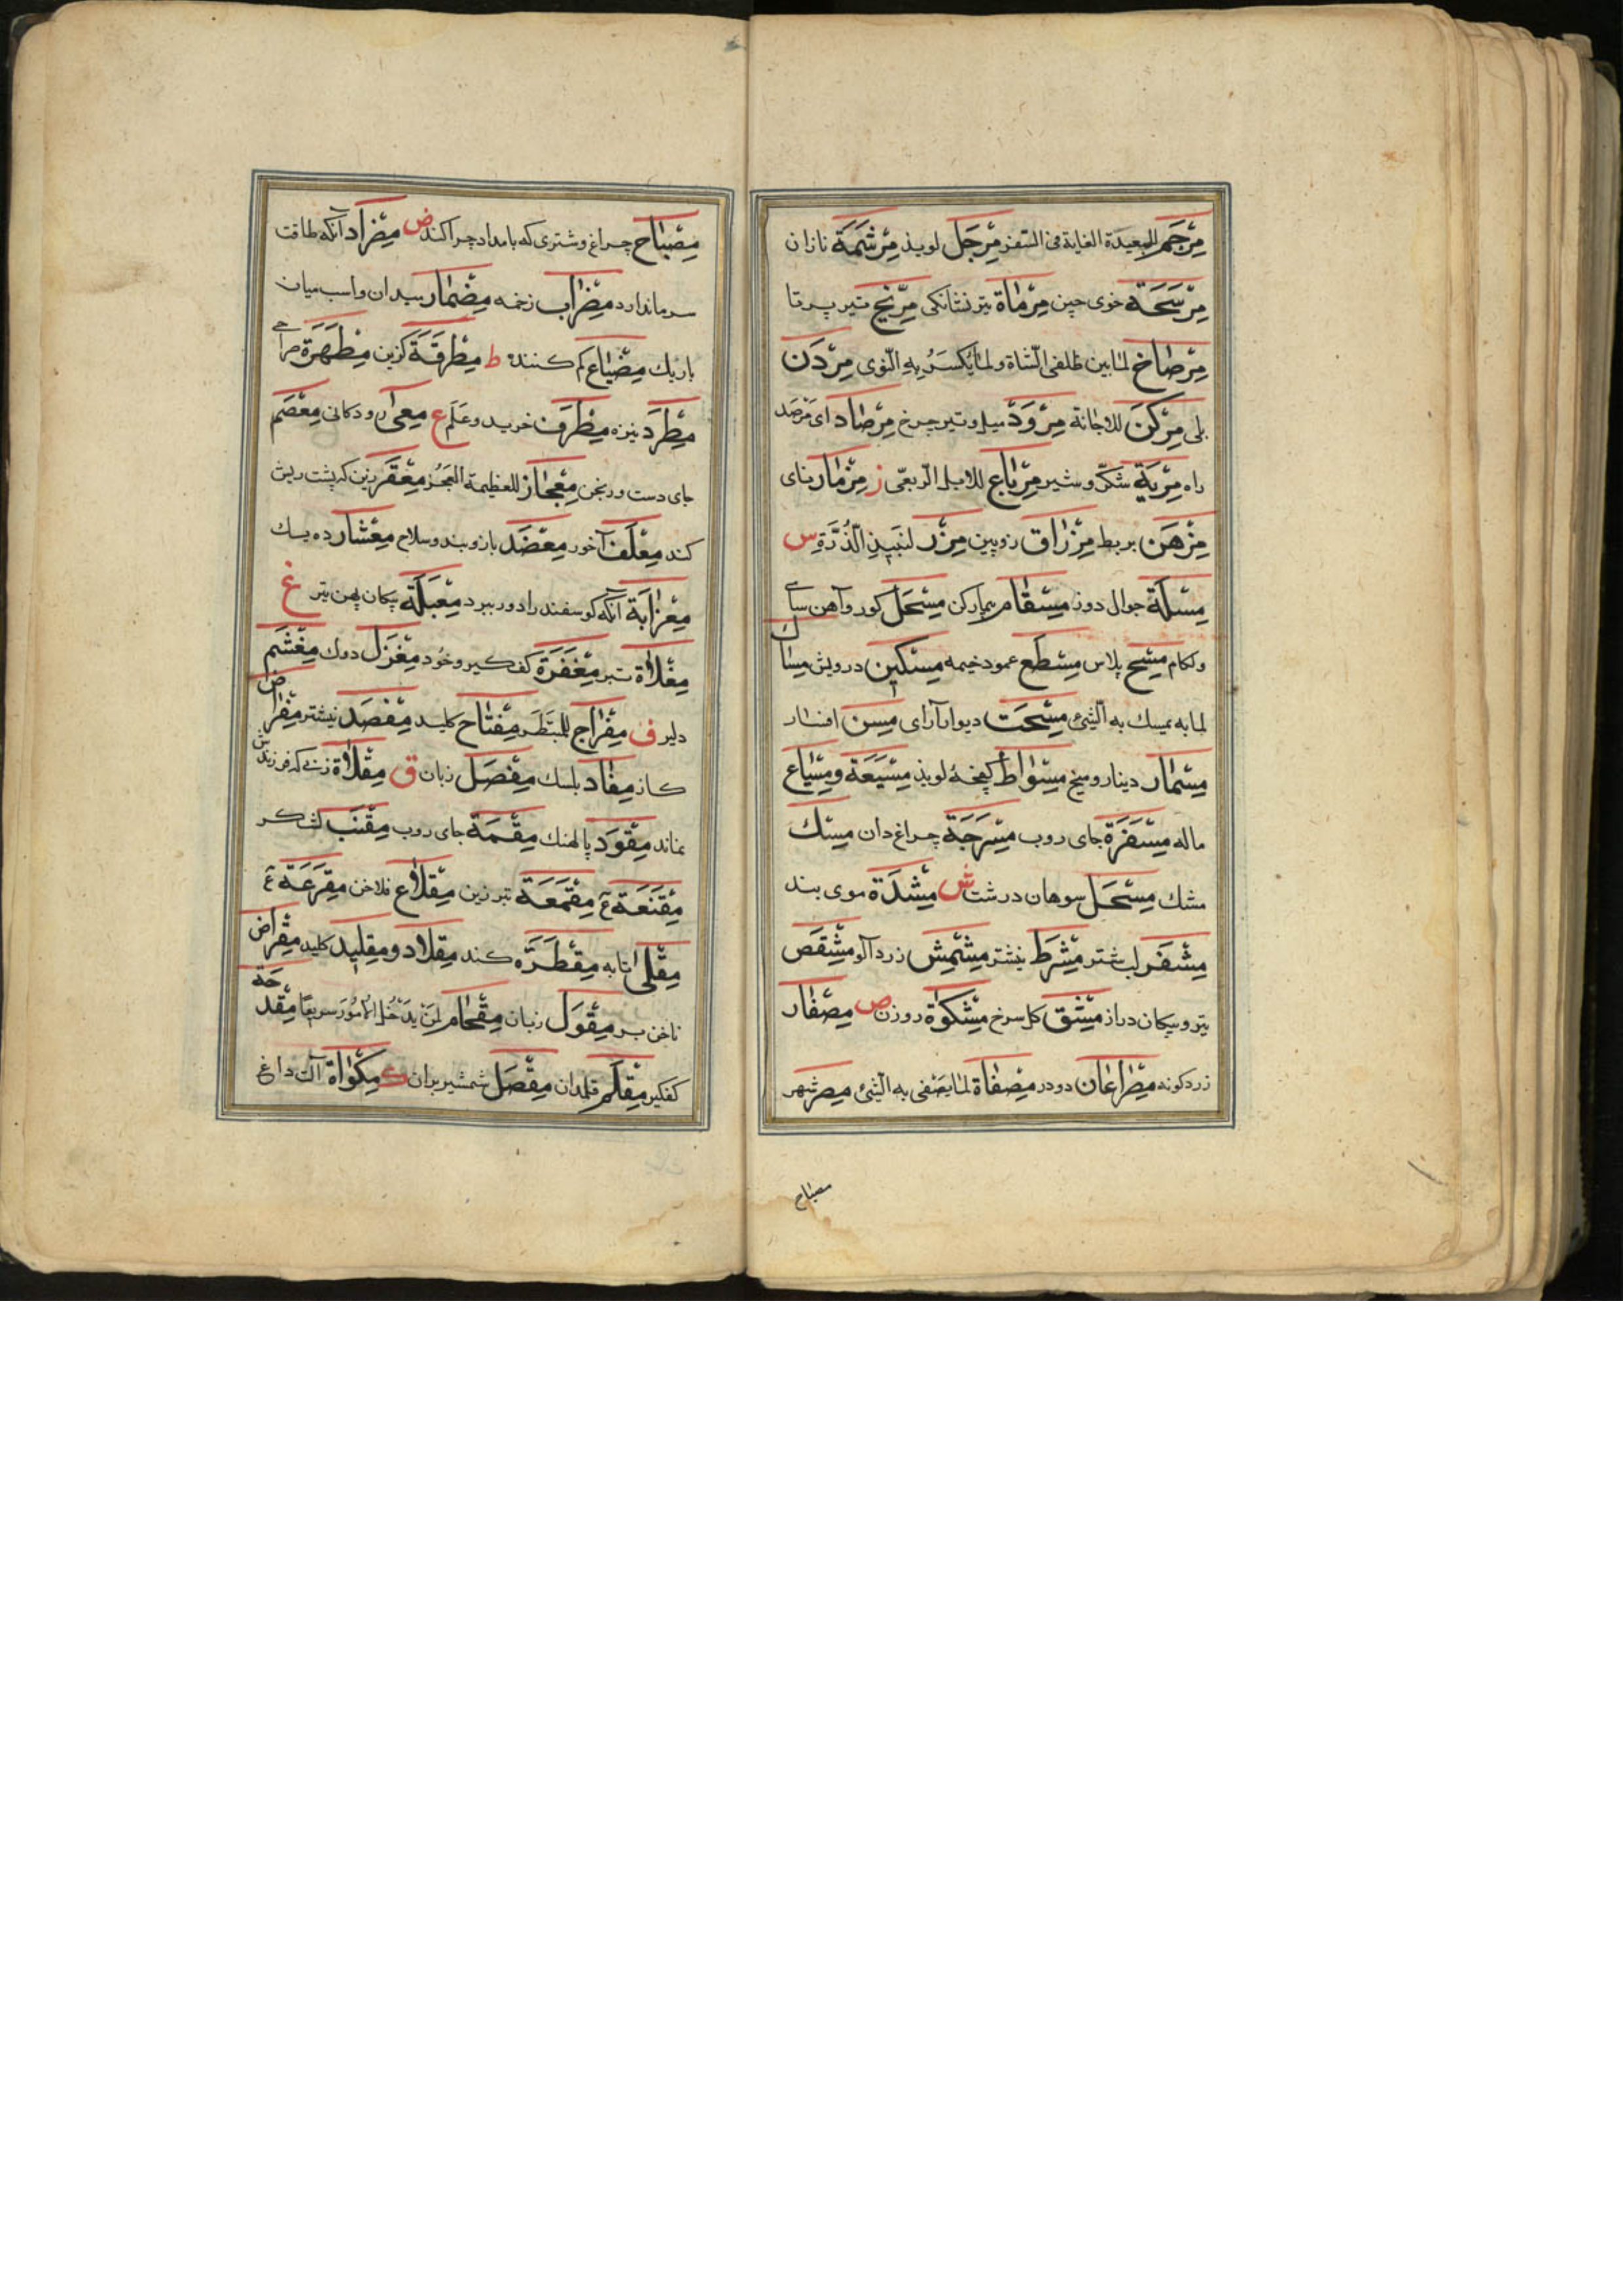 مِرْجَم للبعيدة الغاية فى السفر مِرْجَل لويذ مِرْشَمَة نازان
مِرْشَحَة خوى چين مِرْمَاة تير نشانكى مِرّيخ تير پرتا
مِرْضَاخ لما بين ظلفى الشاة ولما يُكْسَرُ بِهِ النّوى مِرْدَن
مِرْكَن للاجانة مِرْوَد ميل وتير چرخ مِرْصَاد اى مَرْصَد
راه مِرْيَة شكّ وشير مِرْبَاع للابل الرّبعى ز مِزْمَار ناى
مِزْهَر بربط مِزْرَاق زوپين مِزْر لنبيذ الذُّرَة س
مِسَلَّة جوال دوز مِسْقَام بيمار كن مِسْحَل كور وآهن ساى
ولكام مِسْح پلاس مِسْطَح عمود خيمه مِسْكين درويش مِسَاك
لما به يمسك به الشئ مِسْحَت ديوار آراى مِسَن افسار
مِسْمَار دينار وميخ مِسْوَاط كفچۀ لويذ مِسْيَعَة ومِسْيَاع
ماله مِسْفَرَة جاى روب مِسْرَجَة چراغ دان مِسْك
مشك مِسْحَل سوهان درشت ش مِشَدَّة موى بند
مِشْفَر لب شتر مِشْرَط نيشتر مِشْمِش زردآلو مِشْقَص
تير وپيكان دراز مِشْق كل سرخ مِشْكوة روزن ص مِصْفَار
زرد كونه مِصْرَاعَان دو در مِصْفَاة لما يصفى به الشئ مِصْر شهر
مصباح
مِصْبَاح چراغ وشترى كه بامداد چرا كند ض مِضْرَاد آنكه طاقت
سرما ندارد مِضْرَاب زخمه مِضْمَار ميدان واسب ميان
باريك مِضْيَاع كم كننده ط مِطْرَقَة كزين مِطْهَرَة
مِطْرَد نيزه مِطْرَف خز وعَلَم ع مِعَى رودكانى مِعْصَم
جاى دست ورنجن مِعْجَاز للعظيمة العَجُز مِعْقَر زين كه پشت ريش
كند مِعْلَف آخور مِعْضَد بازوبند وسلاح مِعْشَار ده يك
مِعْزَابَة آنكه كوسفند را دور ببرد مِعْبَلَة پيكان پهن تير غ
مِغْلَاة تير مِغْفَرَة كفكير وخود مِغْزَل دوك مِغْشَم
دلير ف مِفْرَاج للمتَطَر مِفْتَاح كليد مِفْصَد نيشتر مِفْرَاض
كاز مِفْأد بلسك مِفْصَل زبان ق مِقْلَاة زنى كه فرزندش
نماند مِقْوَد پالهنك مِقَمَّة جاى روب مِقْنَب لشكر
مِقْنَعَة ع مِقْمَعَة تبرزين مِقْلَاع فلاخن مِقْرَعَة ع
مِقْلَى تابه مِقْطَرَه كند مِقْلَاد ومِقْليد كليد مِقْرَاض
ناخن بر مِقْوَل زبان مِقْحَام لمن يَدْخُل الأمُور سريعًا مِقْدَحة
كفكير مِقْلَم قلمدان مِقْصَل شمشير بران ك مِكْوَاة آلت داغ